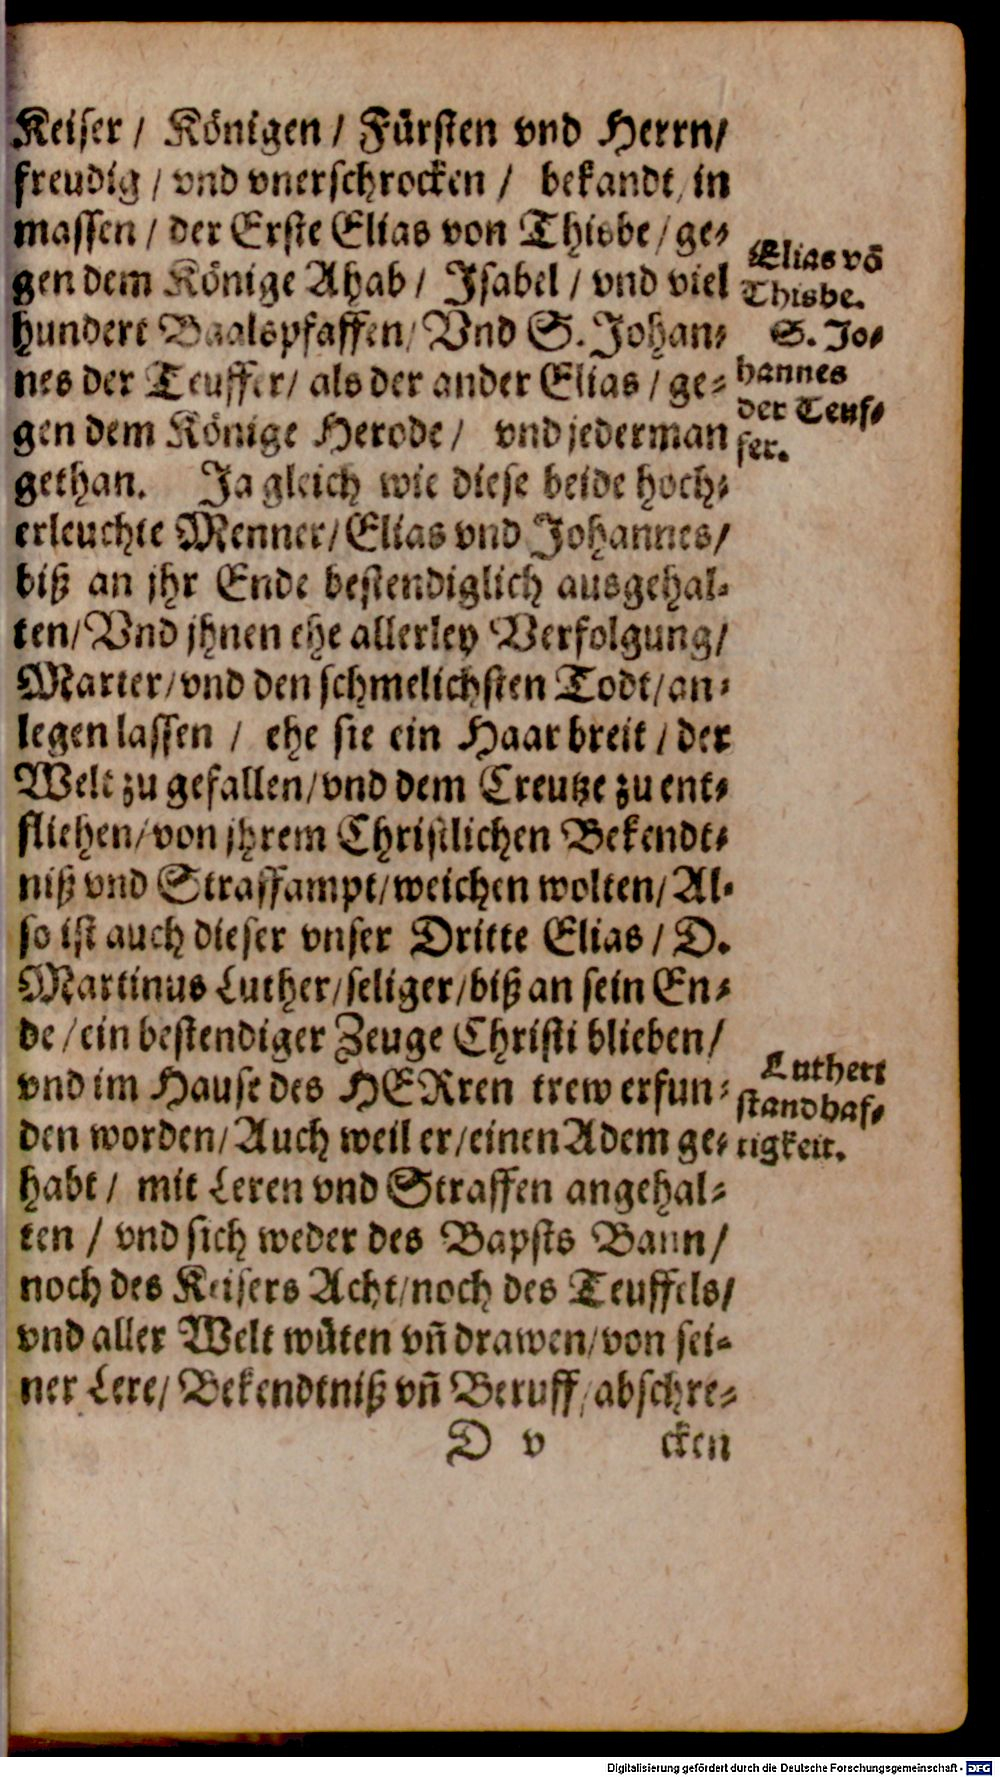 Keiser / Königen / Fürsten vnd Herrn/
freudig / vnd vnerschrocken / bekandt/ in
massen / der Erste Elias von Thisbe / ge⸗
gen dem Könige Ahab / Isabel / vnd viel
hundert Baalspfaffen/ Vnd S. Johan⸗
nes der Teuffer/ als der ander Elias / ge⸗
gen dem Könige Herode / vnd jederman
gethan. Ja gleich wie diese beide hoch⸗
erleuchte Menner/ Elias vnd Johannes/
biß an jhr Ende bestendiglich ausgehal⸗
ten/ Vnd jhnen ehe allerley Verfolgung/
Marter/ vnd den schmelichsten Todt/ an⸗
legen lassen / ehe sie ein Haar breit / der
Welt zu gefallen/ vnd dem Creutze zu ent⸗
fliehen/ von jhrem Christlichen Bekendt⸗
niß vnd Straffampt/ weichen wolten/ Al⸗
so ist auch dieser vnser Dritte Elias / D.
Martinus Luther/ seliger/ biß an sein En⸗
de / ein bestendiger Zeuge Christi blieben/
vnd im Hause des HERren trew erfun⸗
den worden/ Auch weil er/ einen Adem ge⸗
habt / mit Leren vnd Straffen angehal⸗
ten / vnd sich weder des Bapsts Bann/
noch des Keisers Acht/ noch des Teuffels/
vnd aller Welt wüten vñ drawen/ von sei⸗
ner Lere/ Bekendtniß vñ Beruff/ abschre⸗
D v cken
Elias võ
Thisbe.
S. Jo⸗
hannes
der Teuf⸗
fer.
Lutheri
standhaf⸗
tigkeit.
Digitalisierung gefördert durch die Deutsche Forschungsgemeinschaft - DFG